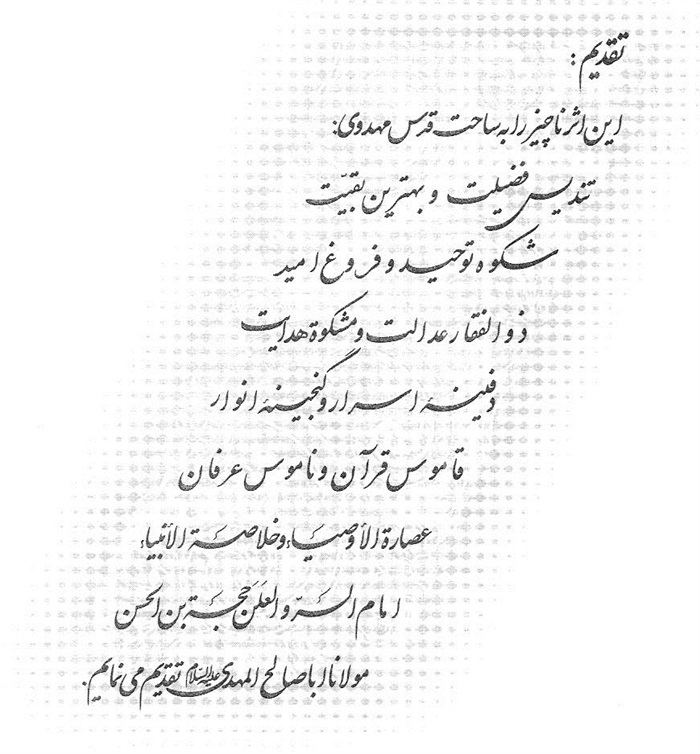 تقدیم :
این اثر ناچیز را به ساحت قدس مهدوی:
تندیس فضیلت و بهترین بقیّت
شکوه توحید و فروغ امید
ذوالفقار عدالت و مشکوة هدایت
دفینهٔ اسرار و گنجینهٔ انوار
قاموس قرآن و ناموس عرفان
عصارة الأوصیاء و خلاصة الأنبیاء
امام السرّ و العَلَن حجة بن الحسن
مولانا اباصالح المهدی علیه‌السلام تقدیم می نمایم.